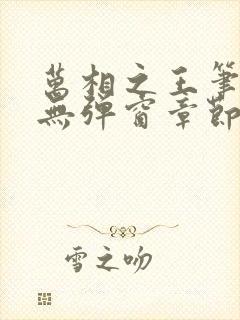 萬相之王筆
無彈窗章節
雪之吻